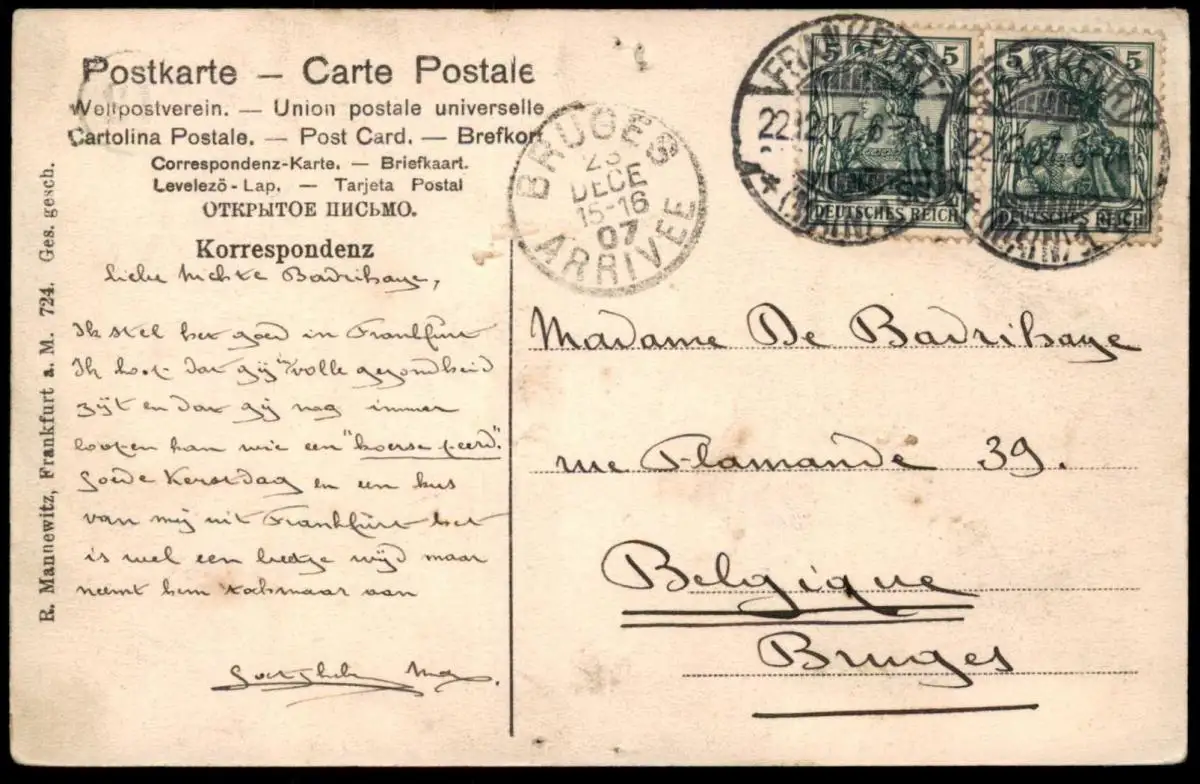 Postkarte – Carte Postale
Weltpostverein. – Union postale universelle
Cartolina Postale. – Post Card. – Brefkort
Correspondenz-Karte. – Briefkaart.
Levelezö-Lap. – Tarjeta Postal
ОТКРЫТОЕ ПИСЬМО.
Korrespondenz
liebe nichte Badrihaye,
Ik stel het goed in Frankfurt
Ik hoop dat gij in volle gezondheid
zijt en dat gij nog immer
loopen kan wie een "koerse peerd".
Goede Kerstdag en een kus
van mij uit Frankfurt het
is wel een beetje wijd maar
neemt hem toch maar aan
R. Mannewitz, Frankfurt a. M. 724. Ges. gesch.
BRUGES
23
DECE
15-16
07
ARRIVEE
FRANKFURT
22.12.07. 6-7
* (MAIN)
5 5
DEUTSCHES REICH
FRANKFURT
22.12.07.
* (MAIN) 1
5 5
DEUTSCHES REICH
Madame De Badrihaye
rue Flamande 39.
Belgique
Bruges